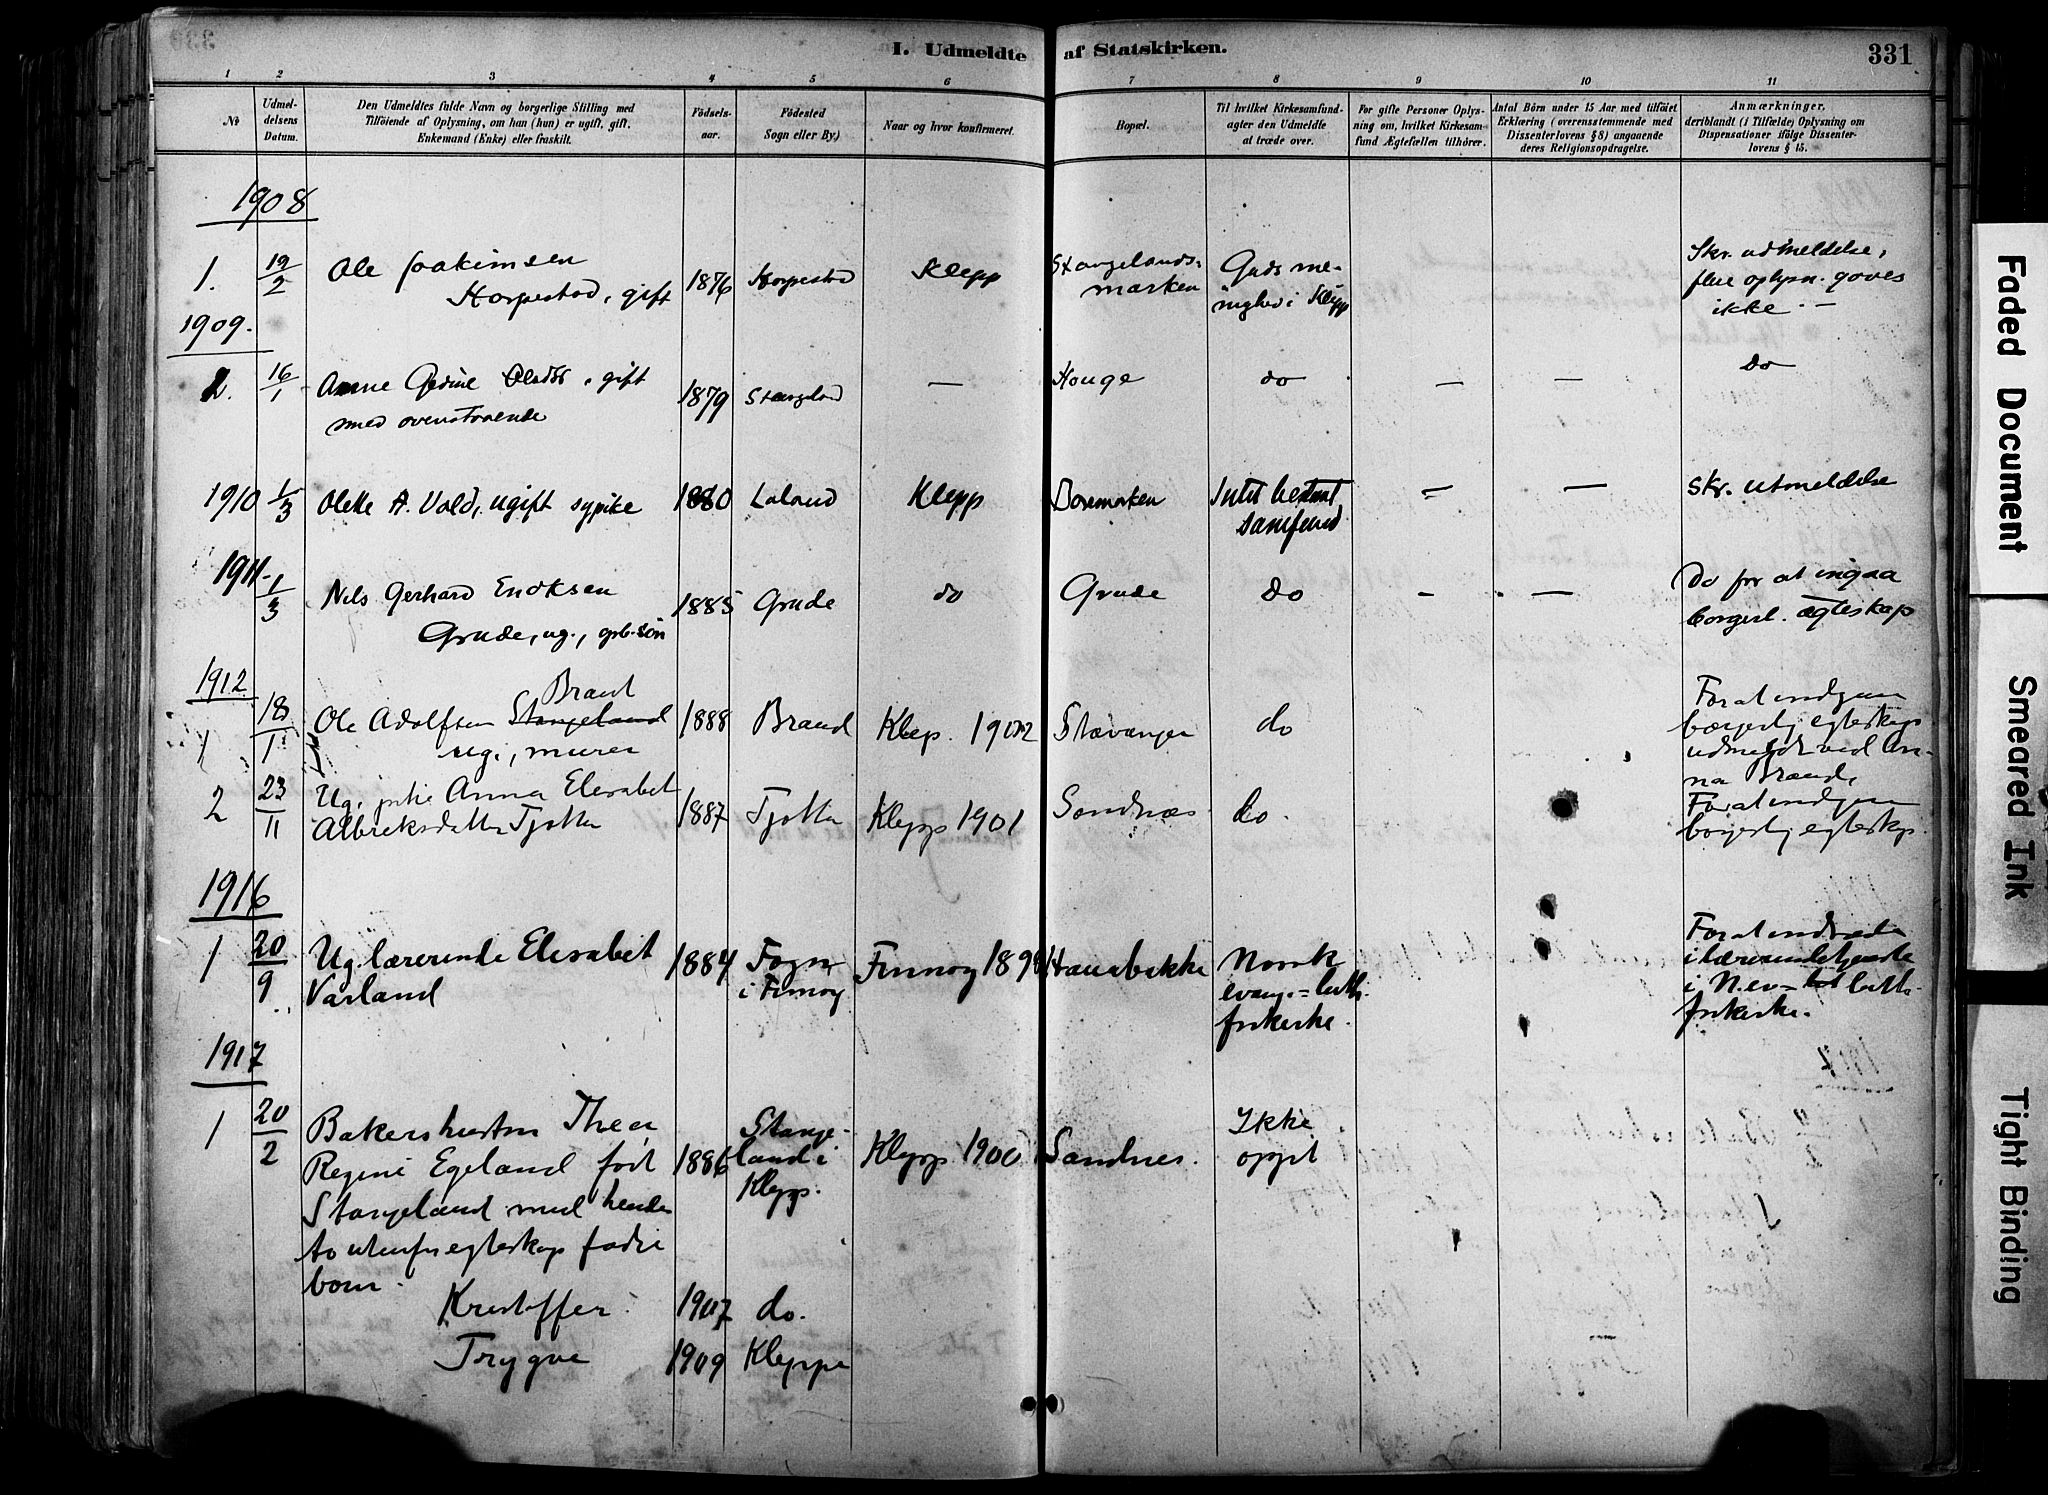 I. Udmeldte af Statskirken.
331
1 2 3 4 5 6 7 8 9 10 11
No
Udmel-
delsens
Datum.
Den Udmeldtes fulde Navn og borgerlige Stilling med
Tilføiende af Oplysning, om han (hun) er ugift, gift,
Enkemand (Enke) eller fraskilt.
Fødsels-
aar.
Fødested
Sogn eller By.)
Naar og hvor konfirmeret.
Bopæl.
Til hvilket Kirkesamfund-
agter den Udmeldte
at træde over.
For gifte Personer Oplys-
ning om, hvilket Kirkesam-
fund Ægtefællen tilhører.
Antal Børn under 15 Aar med tilføiet
Erklæring (overensstemmende med
Dissenterlovens § 8) angaaende
deres Religionsopdragelse.
Anmærkninger,
deriblandt (i Tilfælde) Oplysning om
Dispensationer ifølge Dissenter-
lovens § 15.
1908
1. 19/2 Ole Joakimsen
Horpestad, gift 1876 Horpestad Klepp
Stangelands-
marken
Guds me-
nighed i Klepp
Skr. udmeldelse,
flere oplysn. goves
ikke. —
1909.
2. 16/1 Anne Gurine Olsdtr, gift
med ovenstaaende
1879 Stangeland — Houge do — — do
1910 1/3 Olette A. Vold, ugift sypike 1880 Laland Klepp Boremarken Intet bestemt
samfund
— — Skr. utmeldelse
1911. 1/3 Nils Gerhard Enoksen
Grude, ug., grb.søn
1885 Grude do Grude do - — Do for at ingaa
borgerl. ægteskap
1912
1 18/1 Ole Adolfsen Stangeland Braut
ug., murer
1888 Braud Klep. 1902 Stavanger do
For at indgaa
borgerlig egteskap
udmeldt ved An-
na Braud,
2 23/11 Ug. pike Anna Elisabet
Albreksdatter Tjøtta
1887 Tjøtta Klepp 1901 Sandnæs do.
For at indgaa
borgerlig egteskap.
1916
1 20/9 Ug. lærerinde Elisabet
Varland
1884 Fogn
i Finnøy
Finnøy 1898 Hauabakka
Norsk
evang.=luth.
frikirke.
For at indtræde
i lærerindetjeneste
i N. ev= luth.
frikirke.
1917
1 20/2 Bakershustru Thea
Regine Egeland født
Stangeland med hendes
to utenfor egteskap fødte
born.
1886 Stange-
land i
Klepp.
Klepp 1900 Sandnes.
Ikke
opgit
Kristoffer 1907 do.
Trygve 1909 Kleppe
Faded Document
Smeared Ink
Tight Binding